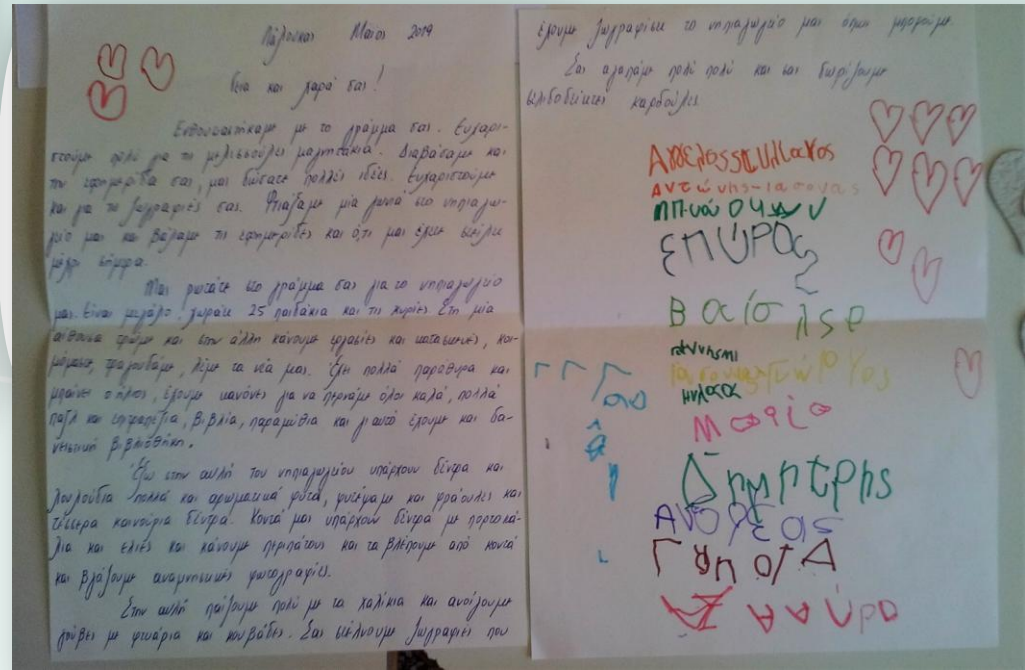 Πάλουκας Μάιος 2019
Γεια και χαρά σας!
Ενθουσιαστήκαμε με το γράμμα σας. Ευχαρι-
στούμε πολύ για τις μελισσούλες μαγνητάκια. Διαβάσαμε και
την εφημερίδα σας, μας δώσατε πολλές ιδέες. Ευχαριστούμε
και για τις ζωγραφιές σας. Φτιάξαμε μία γωνιά στο νηπιαγω-
γείο μας και βάλαμε τις εφημερίδες και ό,τι μας έχετε στείλει
μέχρι σήμερα.
Μας ρωτάτε στο γράμμα σας για το νηπιαγωγείο
μας. Είναι μεγάλο! χωράει 25 παιδάκια και τις κυρίες. Στη μία
αίθουσα τρώμε και στην άλλη κάνουμε εργασίες και κατασκευές, κοι-
μόμαστε, τραγουδάμε, λέμε τα νέα μας. Έχει πολλά παράθυρα και
μπαίνει ο ήλιος, έχουμε κανόνες για να περνάμε όλοι καλά, πολλά
παζλ και επιτραπέζια, βιβλία, παραμύθια και γι αυτό έχουμε και δα-
νειστική βιβλιοθήκη.
Έξω στην αυλή του νηπιαγωγείου υπάρχουν δέντρα και
λουλούδια πολλά και αρωματικά φυτά, φυτέψαμε και φράουλες και
τέσσερα καινούρια δέντρα. Κοντά μας υπάρχουν δέντρα με πορτοκά-
λια και ελιές και κάνουμε περιπάτους και τα βλέπουμε από κοντά
και βγάζουμε αναμνηστικές φωτογραφίες.
Στην αυλή παίζουμε πολύ με τα χαλίκια και ανοίγουμε
γούβες με φτυάρια και κουβάδες. Σας στέλνουμε ζωγραφιές που
έχουμε ζωγραφίσει το νηπιαγωγείο μας όπως μπορούμε.
Σας αγαπάμε πολύ πολύ και σας δωρίζουμε
σελιδοδείκτες καρδούλες.
Αντώνης-Ιάσονας
ΣΠΥΡΟΣ
Μαρία
Δημητρης
ΑΝΔΡΕΑΣ